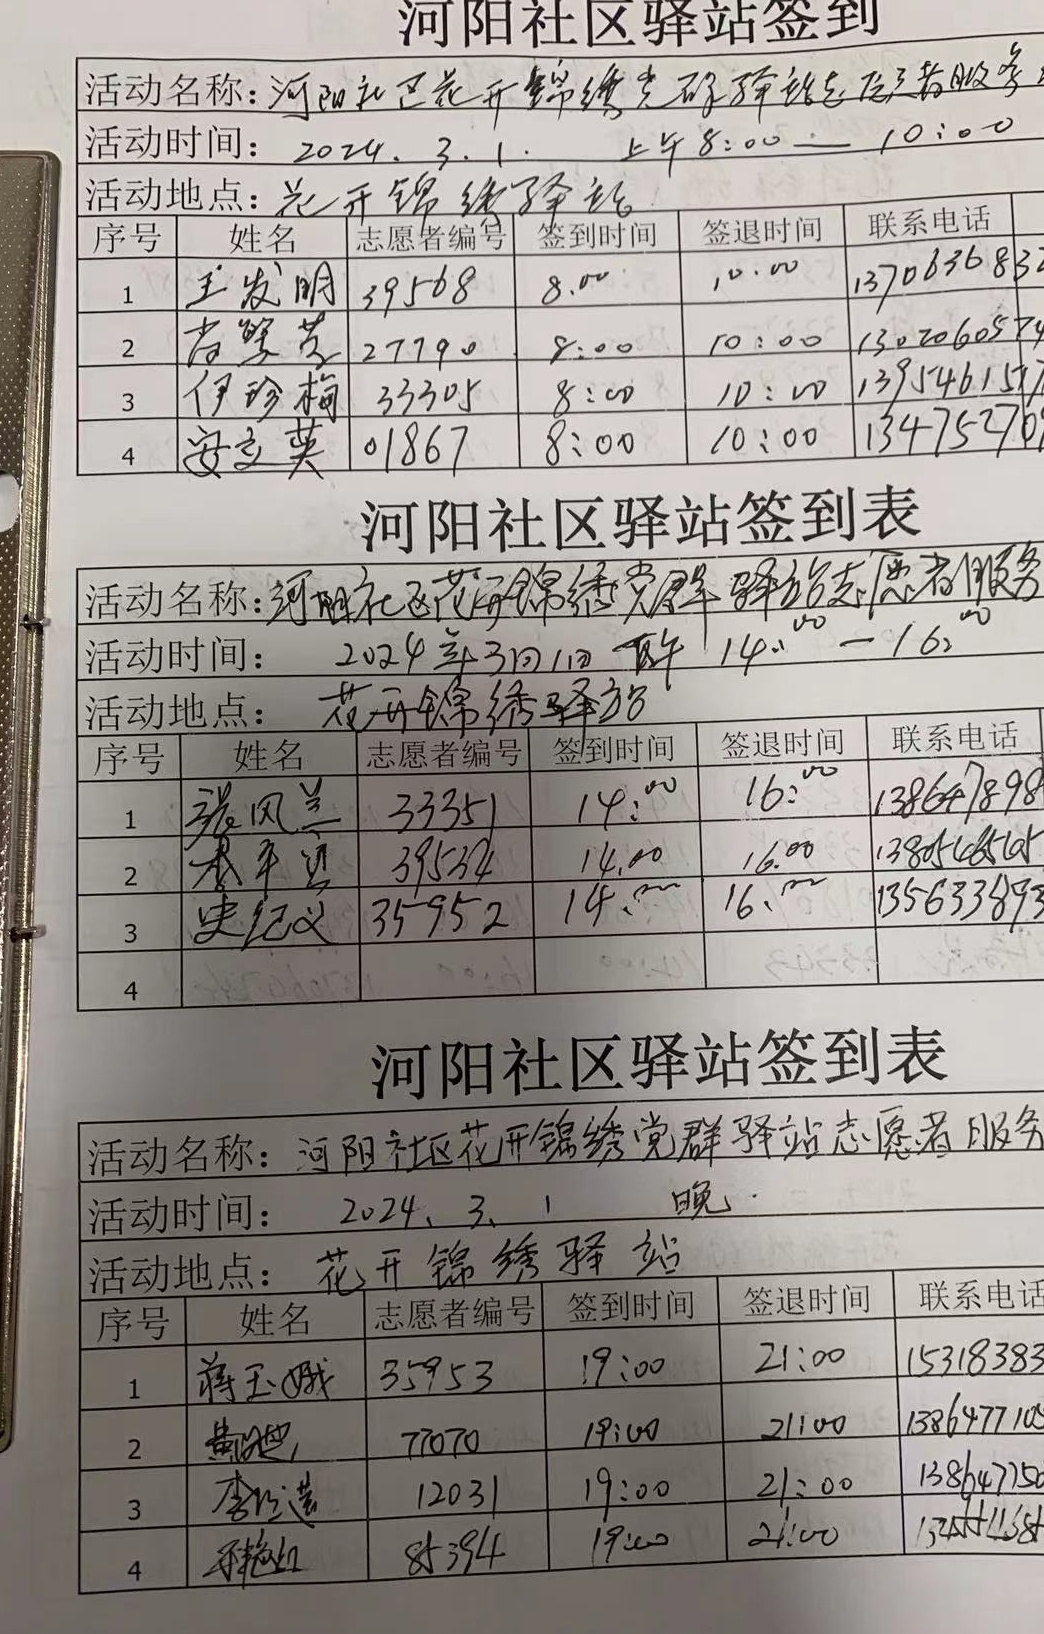 河阳社区驿站签到
活动名称：河阳社区花开锦绣党群驿站志愿者服务
活动时间： 2024. 3. 1. 上午8:00—10:00
活动地点：花开锦绣驿站
序号 姓名 志愿者编号 签到时间 签退时间 联系电话
1 王发明 39568 8:00 10:00 137063683
2 27790 8:00 10:00 130206057
3 伊珍梅 33305 8:00 10:00 13954615
4 安文英 01867 8:00 10:00 13475270
河阳社区驿站签到表
活动名称：河阳社区花开锦绣党群驿站志愿者服务
活动时间： 2024年3月1日 下午 14:00—16:00
活动地点： 花开锦绣驿站
序号 姓名 志愿者编号 签到时间 签退时间 联系电话
1 张风兰 33351 14:00 16:00 138647898
2 39534 14:00 16:00
3 史纪义 35952 14:00 16:00 135633893
4
河阳社区驿站签到表
活动名称：河阳社区花开锦绣党群驿站志愿者服务
活动时间： 2024. 3. 1 晚.
活动地点： 花开锦绣驿站
序号 姓名 志愿者编号 签到时间 签退时间 联系电话
1 蒋玉娥 35953 19:00 21:00 15318383
2 77070 19:00 21:00 138647710
3 12031 19:00 21:00 138647750
4 85394 19:00 21:00